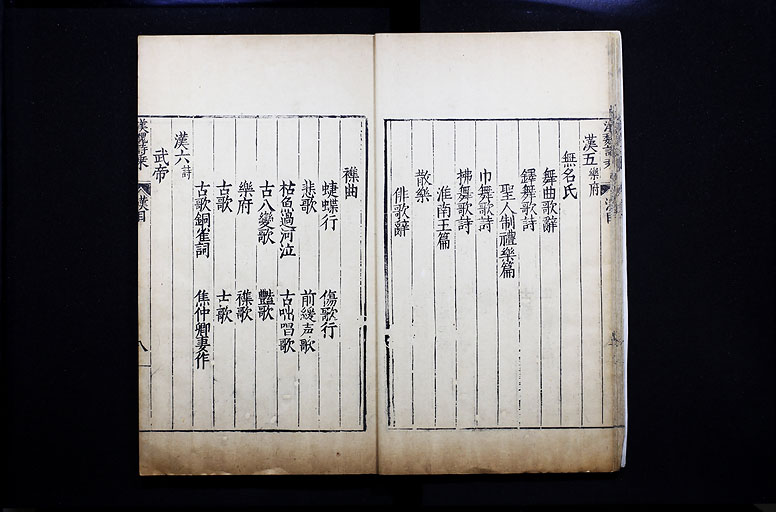 漢五樂府
無名氏
舞曲歌辭
鐸舞歌詩
聖人制禮樂篇
巾舞歌詩
拂舞歌詩
淮南王篇
散樂
俳歌辭
襍曲
蜨蝶行 傷歌行
悲歌 前緩声歌
枯魚過河泣 古咄唶歌
古八變歌 豔歌
樂府 襍歌
古歌 古歌
古歌銅雀詞 焦仲卿妻作
漢六詩
武帝
漢魏詩乘 漢目 八